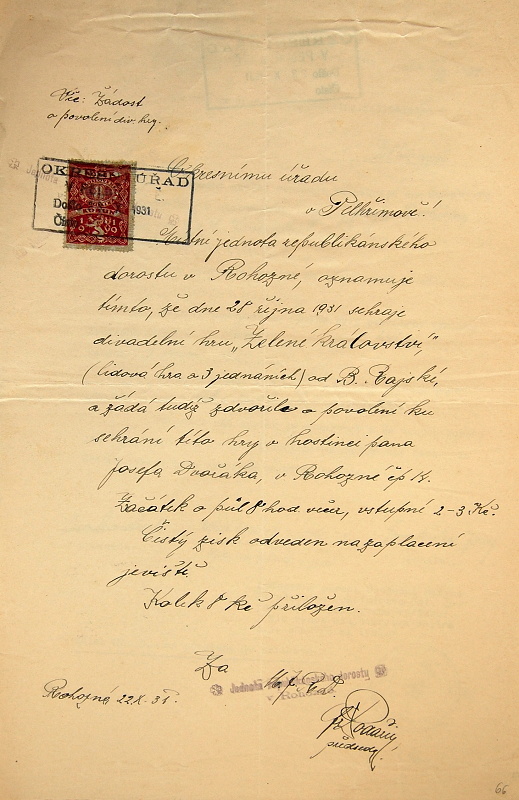 Věc: Žádost
o povolení div. hry.
Okresnímu úřadu
v Pelhřimově!
OKRESNÍ ÚŘAD
1931
Místní jednota republikánského
dorostu v Rohozné, oznamuje
tímto, že dne 28 října 1931 sehraje
divadelní hru „Zelené království",
(lidová hra o 3 jednáních) od B. Rajské,
a žádá tudíž zdvořile o povolení ku
sehrání této hry v hostinci pana
Josefa Dvořáka, v Rohozné čp
Začátek o půl 8 hod več, vstupné 2-3 Kč.
Čistý zisk odveden na zaplacení
jeviště.
Kolek 8 kč přiložen.
Za M.J.R.D.
Jednota dorostu
v Rohozné
Rohozná 22.X. 31.
předseda
66